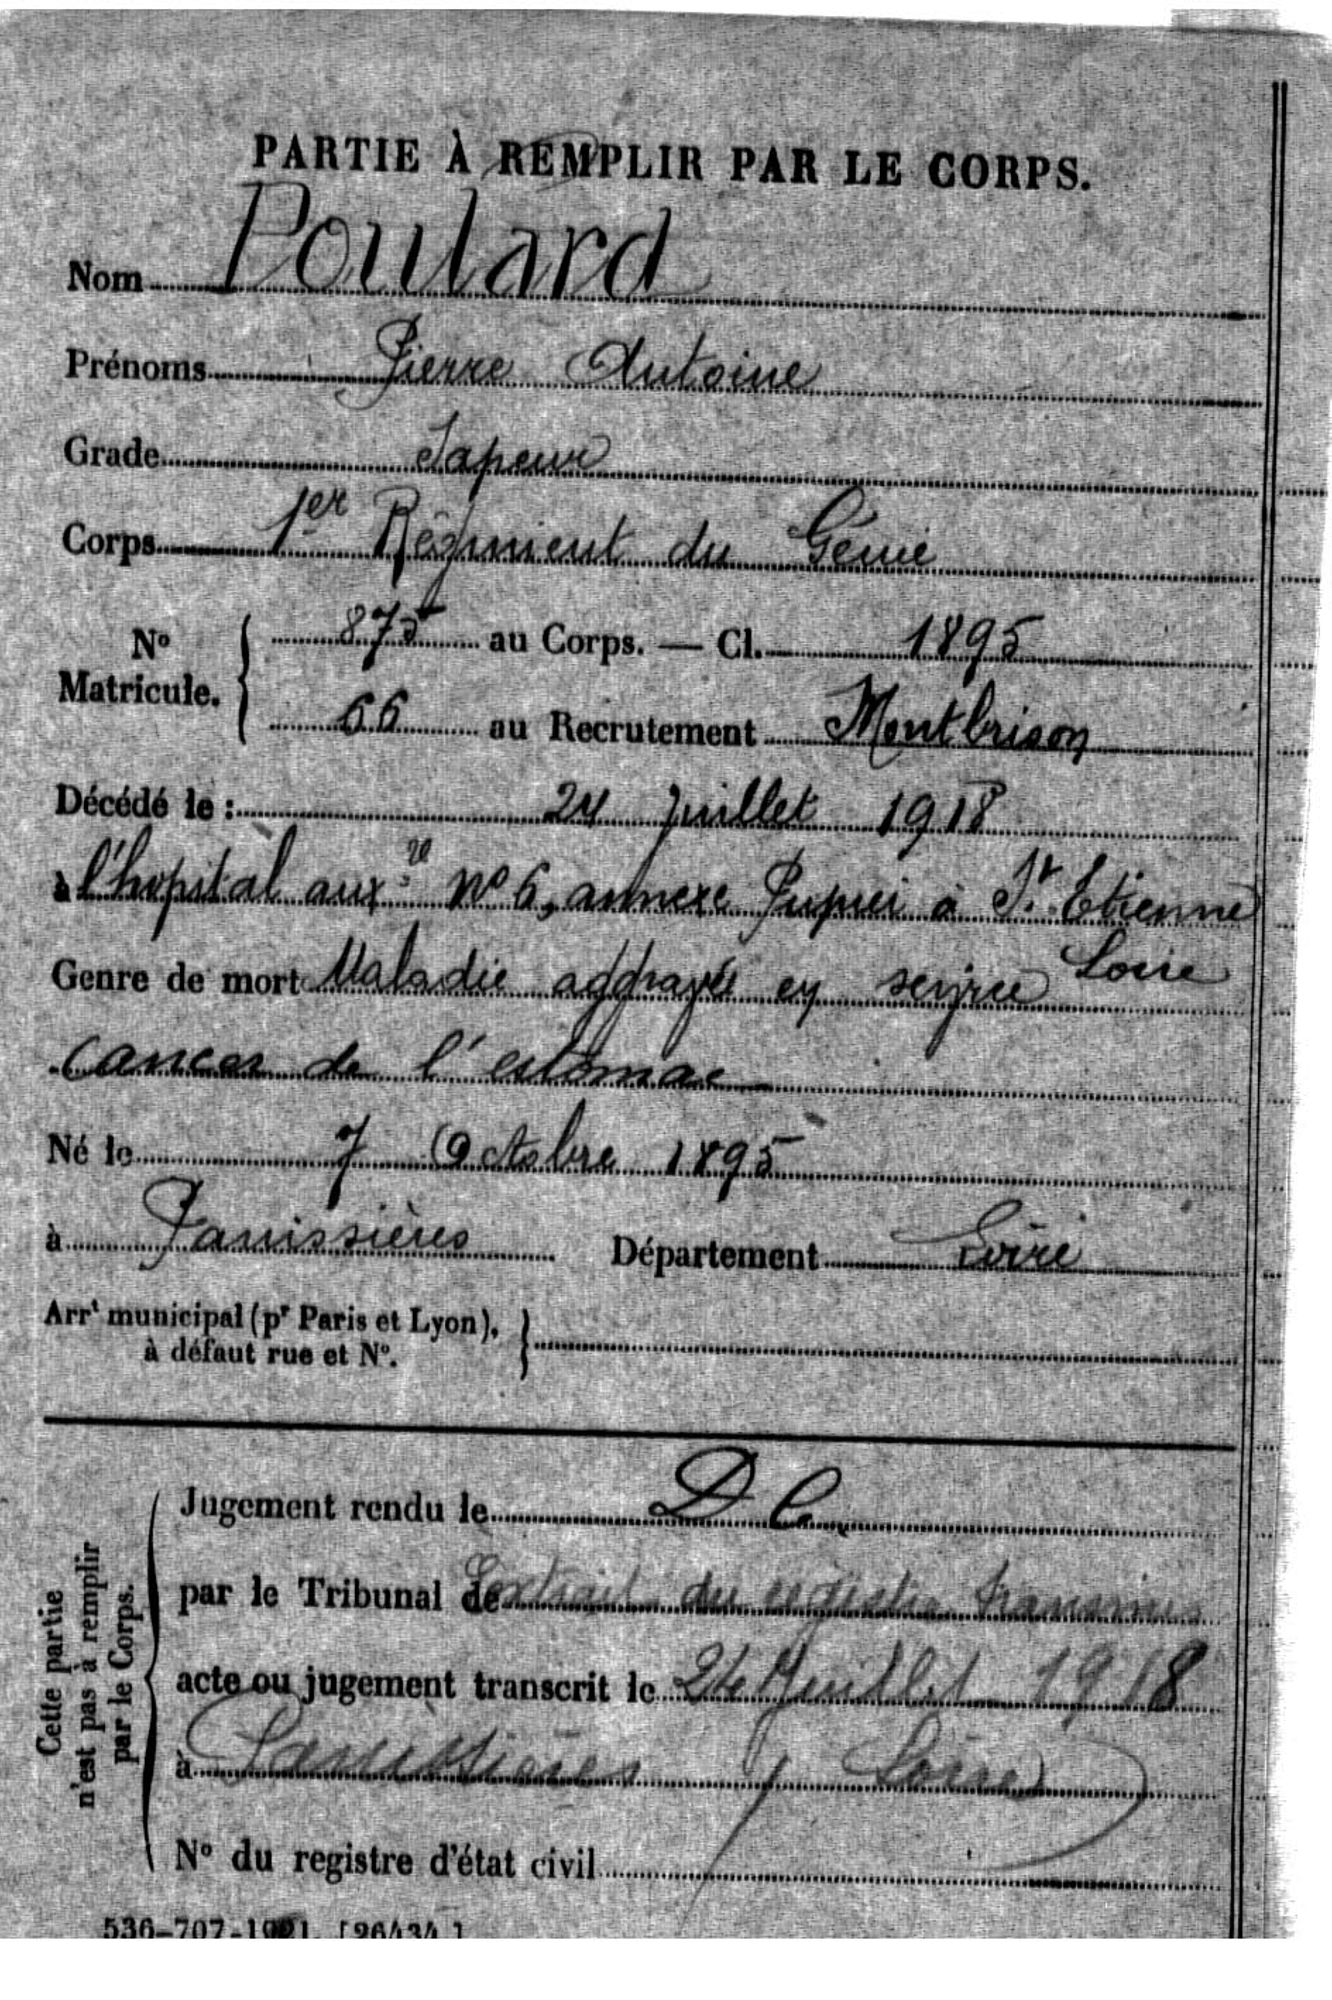 PARTIE À REMPLIR PAR LE CORPS.
Nom Poulard
Prénoms Pierre Antoine
Grade Sapeur
Corps 1er Régiment du Génie
No Matricule. { 875 au Corps. — Cl. 1895
66 au Recrutement Montbrison
Décédé le : 24 Juillet 1918
à l'hopital auxre no 6, annexe à St Etienne
Loire
Genre de mort Maladie aggravée en service
Cancer de l'estomac
Né le 7 Octobre 1895
à Panissières Département Loire
Arrt municipal (pr Paris et Lyon),
à défaut rue et No. }
Cette partie
n'est pas à remplir
par le Corps.
Jugement rendu le D C
par le Tribunal de Extrait du registre transmis
acte ou jugement transcrit le 24 Juillet 1918
à Panissières (Loire)
No du registre d'état civil
536-707-1921. [26434.]